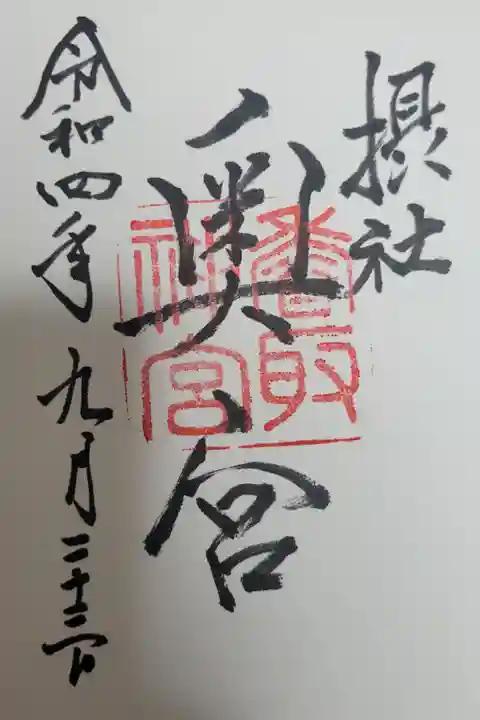 摂社
奥宮
香取神宮
令和四年九月二十三日